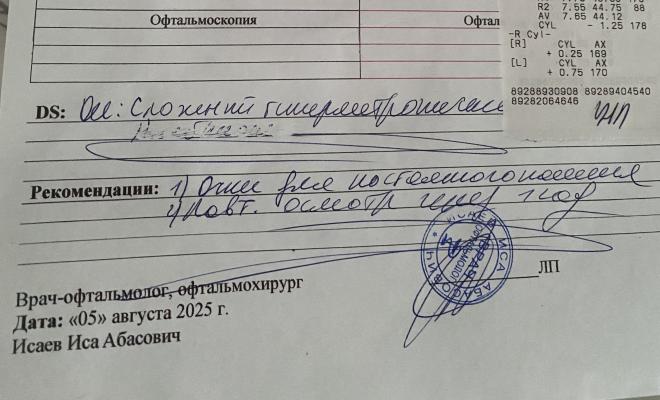 Офтальмоскопия
Офтал
R2 7.55 44.75 88
AV 7.65 44.12
CYL - 1.25 178
-R Cyl-
[R] CYL AX
+ 0.25 169
[L] CYL AX
+ 0.75 170
89288930908 89289404540
89282064646
DS: Ou: Сложный гиперметропическ
Рекомендации: 1) Очки для постоянного ношения
2) Повт. осмотр через 1 год
ЛП
Врач-офтальмолог, офтальмохирург
Дата: «05» августа 2025 г.
Исаев Иса Абасович
ИСАЕВ ИСА АБАСОВИЧ
ВРАЧ